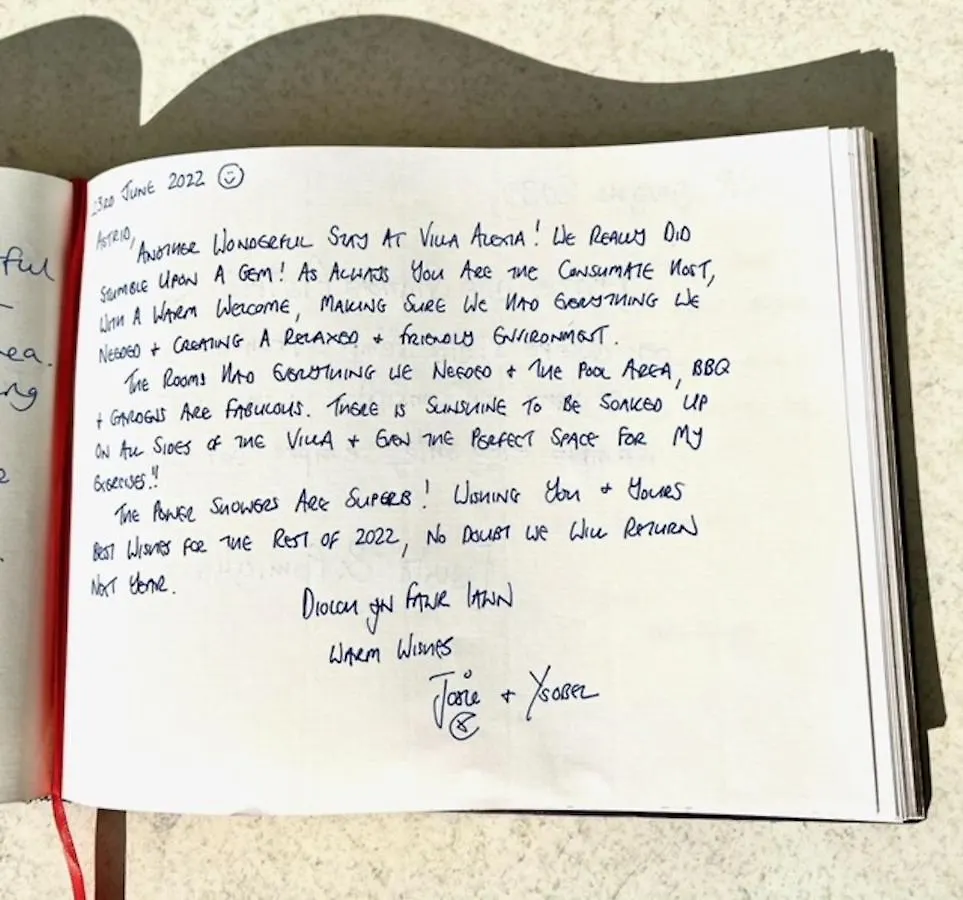 23RD JUNE 2022
ASTRID,
ANOTHER WONDERFUL STAY AT VILLA ALEXIA! WE REALLY DID
STUMBLE UPON A GEM! AS ALWAYS YOU ARE THE CONSUMATE HOST,
WITH A WARM WELCOME, MAKING SURE WE HAD EVERYTHING WE
NEEDED + CREATING A RELAXED + FRIENDLY ENVIRONMENT.
THE ROOMS HAD EVERYTHING WE NEEDED + THE POOL AREA, BBQ
+ GARDENS ARE FABULOUS. THERE IS SUNSHINE TO BE SOAKED UP
ON ALL SIDES OF THE VILLA + EVEN THE PERFECT SPACE FOR MY
EXERCISES!!
THE POWER SHOWERS ARE SUPERB! WISHING YOU + YOURS
BEST WISHES FOR THE REST OF 2022, NO DOUBT WE WILL RETURN
NEXT YEAR.
DIOLCH YN FAWR IAWN
WARM WISHES
Josie + YSOBEL
ful
ea.
ng